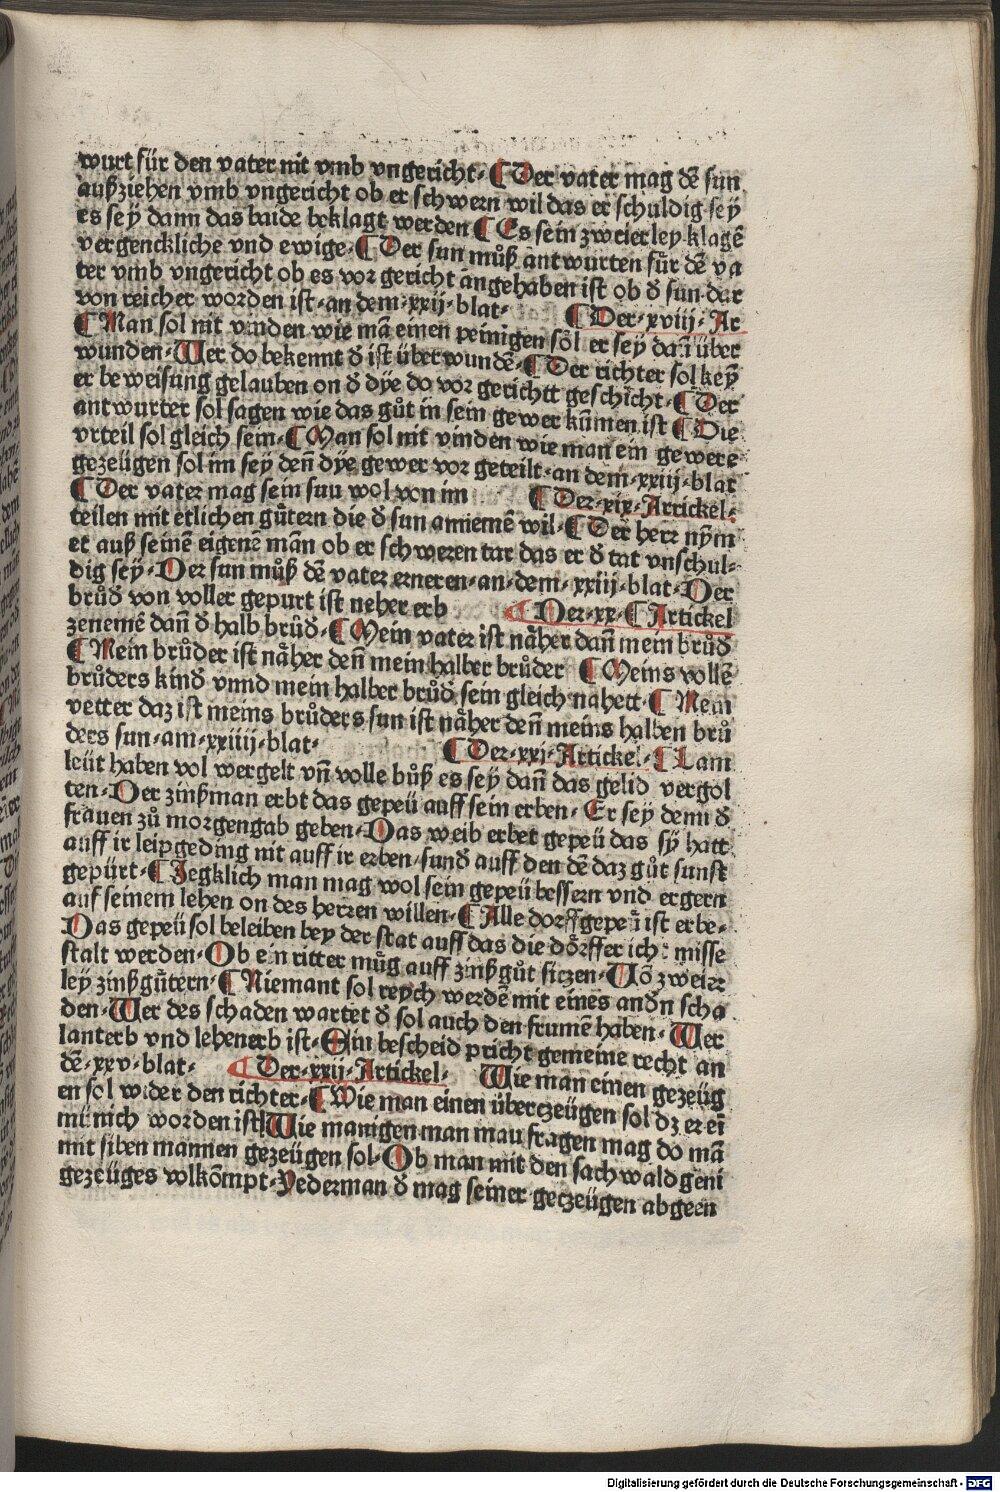 wurt für den vater nit vmb vngericht· ¶ Der vater mag dē sun
außziehen vmb vngericht ob er schwern wil das er schuldig sey
es sey dann das baide beklagt werden ¶ Es sein zweierley klagē
vergenckliche vnd ewige· ¶ Der sun můß antwurten für dē va
ter vmb vngericht ob es vor gericht angehaben ist ob d̄ sun dar
von reicher worden ist· an dem· xxij· blat· ¶ Der· xviij· Ar
¶ Man sol nit vinden wie mā einen peinigen söl er sey dañ über
wunden· Wer do bekennt d̄ ist überwundē· ¶ Der richter sol keÿ
er beweisung gelauben on d̄ dye do vor gerichtt geschicht· ¶ Der
antwurter sol sagen wie das gůt in sein gewer kūmen ist ¶ Die
vrteil sol gleich sein· ¶ Man sol nit vinden wie man ein gewere
gezeügen sol im sey deñ dye gewer vor geteilt· an dem· xxiij· blat
¶ Der vater mag sein sun wol von im ¶ Der· xix· Artickel·
teilen mit etlichen gütern die d̄ sun annemē wil· ¶ Der herr nym
et auß seinē eigenē man ob er schweren tar das er d̄ tat vnschul-
dig sey· Der sun můß dē vater erneren· an· dem· xxiij· blat· Der
brůd̄ von voller gepurt ist neher erb ¶ Der· xx· ¶ Artickel
zenemē dañ d̄ halb brůd̄· ¶ Mein vater ist näher dañ mein brůd̄
¶ Mein brůder ist näher deñ mein halber brůder ¶ Meins vollē
brůders kind vnnd mein halber brůd̄ sein gleich nahett· ¶ Mein
vetter daz ist meins brůders sun ist näher deñ meins halben brů
ders sun· am· xxiiij· blat· ¶ Der· xxj· Artickel· ¶ Lam
leüt haben vol wergelt vñ volle bůß es sey dañ das gelid vergol
ten· Der zinßman erbt das gepeü auff sein erben· Er sey denn d̄
frauen zů morgengab geben· Das weib erbet gepeü das sÿ hatt
auff ir leipgeding nit auff ir erben· sund̄ auff den dē daz gůt sunst
gepürt· ¶ Jegklich man mag wol sein gepeü bessern vnd ergern
auf seinem lehen on des herren willen· ¶ Alle dorffgepeü ist erbe·
Das gepeü sol beleiben bey der stat auff das die dörffer icht misse
stalt werden· Ob ein ritter müg auff zinßgůt siczen· Uō zweier
ley zinßgütern· ¶ Niemant sol reych werdē mit eines and̄n scha
den· Wer des schaden wartet d̄ sol auch den frumē haben· Wer
lanterb vnd lehenerb ist· Ein bescheid pricht gemeine recht an
dē· xxv· blat· ¶ Der· xxij· Artickel· Wie man einen gezeüg
en sol wider den richter· ¶ Wie man einen überczeügen sol dz er ei
münich worden ist Wie manigen man mau fragen mag do mā
mit siben mannen gezeügen sol· Ob man mit den sachwald geni
gezeüges volkōmpt· Yederman d̄ mag seiner geczeügen abgeen
Digitalisierung gefördert durch die Deutsche Forschungsgemeinschaft - DFG